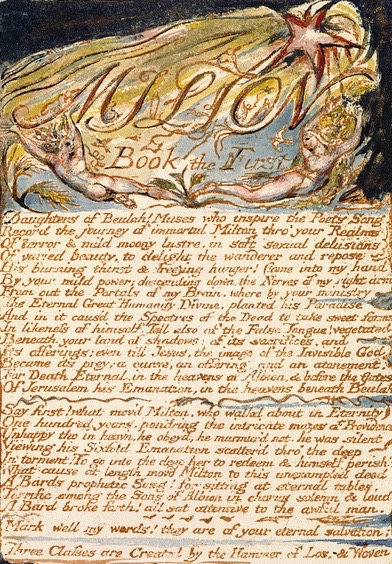 MILTON
Book the First
Daughters of Beulah! Muses who inspire the Poets Song
Record the journey of immortal Milton thro' your Realms
Of terror & mild moony lustre, in soft sexual delusions
Of varied beauty, to delight the wanderer and repose
His burning thirst & freezing hunger! Come into my hand
By your mild power; descending down the Nerves of my right arm
From out the Portals of my Brain, where by your ministry
The Eternal Great Humanity Divine, planted his Paradise,
And in it caus'd the Spectres of the Dead to take sweet forms
In likeness of himself. Tell also of the False Tongue! vegetated
Beneath your land of shadows: of its sacrifices, and
Its offerings; even till Jesus, the image of the Invisible God
Became its prey; a curse, an offering, and an atonement,
For Death Eternal in the heavens of Albion, & before the Gates
Of Jerusalem his Emanation, in the heavens beneath Beulah
Say first! what mov'd Milton, who walkd about in Eternity
One hundred years, pondring the intricate mazes of Providence
Unhappy tho in heav'n, he obey'd, he murmur'd not. he was silent
Viewing his Sixfold Emanation scatter'd thro' the deep
In torment! To go into the deep her to redeem & himself perish?
What cause at length mov'd Milton to this unexampled deed
A Bards prophetic Song! for sitting at eternal tables,
Terrific among the Sons of Albion in chorus solemn & loud
A Bard broke forth! all sat attentive to the awful man.
Mark well my words! they are of your eternal salvation:
Three Classes are Created by the Hammer of Los, & Woven